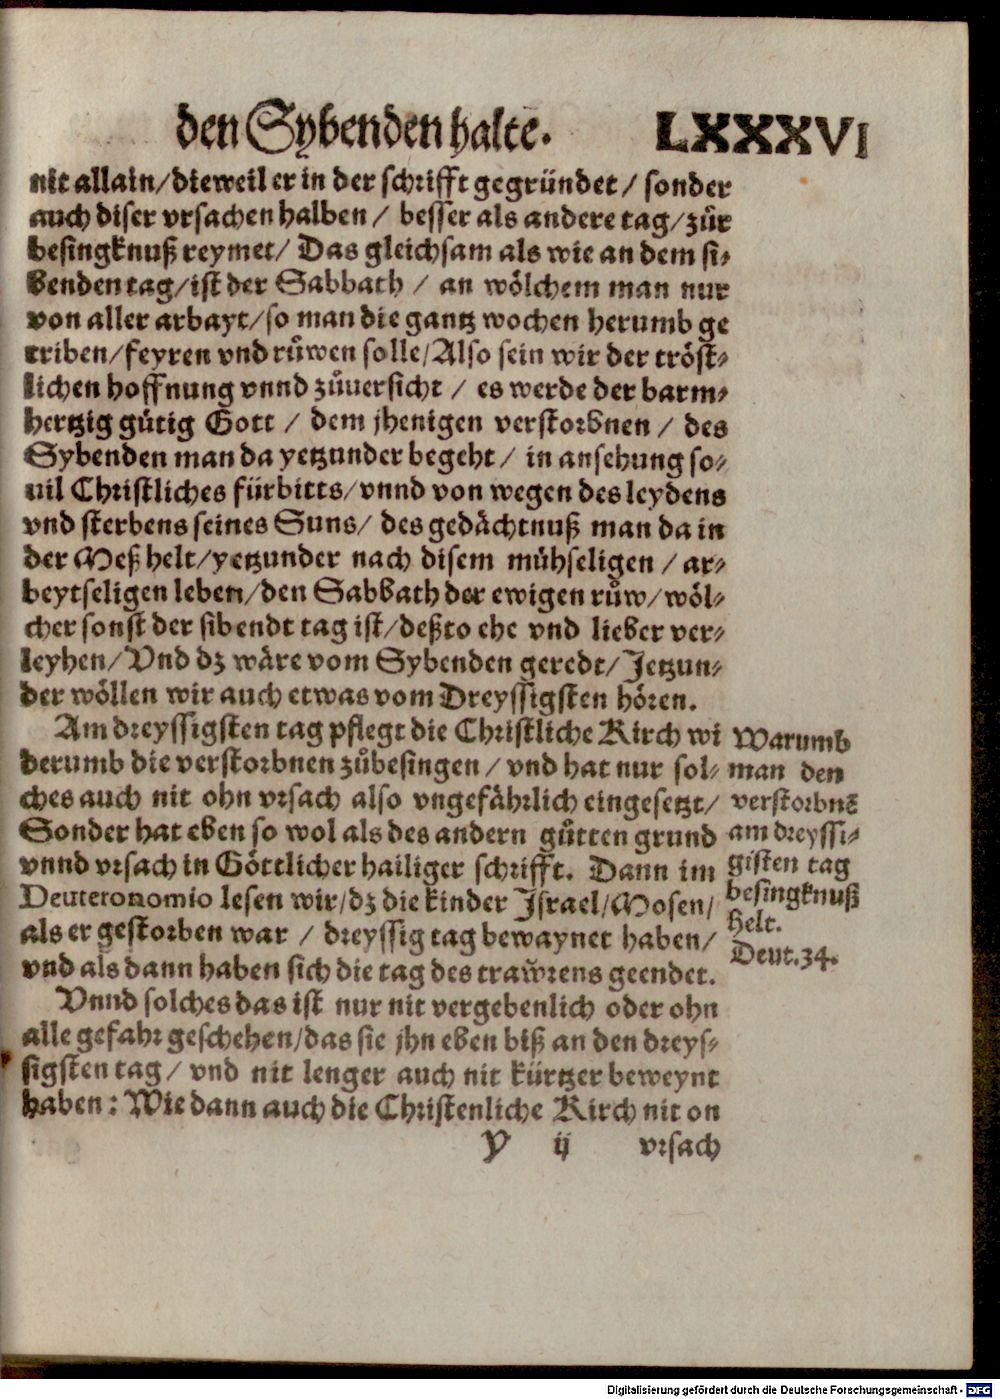 den Sybenden halte. LXXXVI
nit allain/dieweil er in der schrifft gegründet / sonder
auch diser vrsachen halben / besser als andere tag/zůr
besingknuß reymet/ Das gleichsam als wie an dem si⸗
benden tag/ist der Sabbath / an wölchem man nur
von aller arbayt/so man die gantz wochen herumb ge
triben/feyren vnd růwen solle/Also sein wir der tröst⸗
lichen hoffnung vnnd zůuersicht / es werde der barm⸗
hertzig gütig Gott / dem jhenigen verstorbnen / des
Sybenden man da yetzunder begeht / in ansehung so⸗
uil Christliches fürbitts/vnnd von wegen des leydens
vnd sterbens seines Suns/ des gedächtnuß man da in
der Meß helt/yetzunder nach disem mühseligen / ar⸗
beytseligen leben/den Sabbath der ewigen růw/wöl⸗
cher sonst der sibendt tag ist/deßto ehe vnd lieber ver⸗
leyhen/Vnd dz wäre vom Sybenden geredt/Jetzun⸗
der wöllen wir auch etwas vom Dreyssigsten hören.
Am dreyssigsten tag pflegt die Christliche Kirch wi
derumb die verstorbnen zůbesingen / vnd hat nur sol⸗
ches auch nit ohn vrsach also vngefährlich eingesetzt/
Sonder hat eben so wol als des andern gůtten grund
vnnd vrsach in Göttlicher hailiger schrifft. Dann im
Deuteronomio lesen wir/dz die kinder Israel/Mosen/
als er gestorben war / dreyssig tag bewaynet haben/
vnd als dann haben sich die tag des traẘrens geendet.
Vnnd solches das ist nur nit vergebenlich oder ohn
alle gefahr geschehen/das sie jhn eben biß an den dreys⸗
sigsten tag / vnd nit lenger auch nit kürtzer beweynt
haben: Wie dann auch die Christenliche Kirch nit on
Y ij vrsach
Warumb
man den
verstorbnẽ
am dreyssi⸗
gisten tag
besingknuß
helt.
Deut.34.
Digitalisierung gefördert durch die Deutsche Forschungsgemeinschaft - DFG